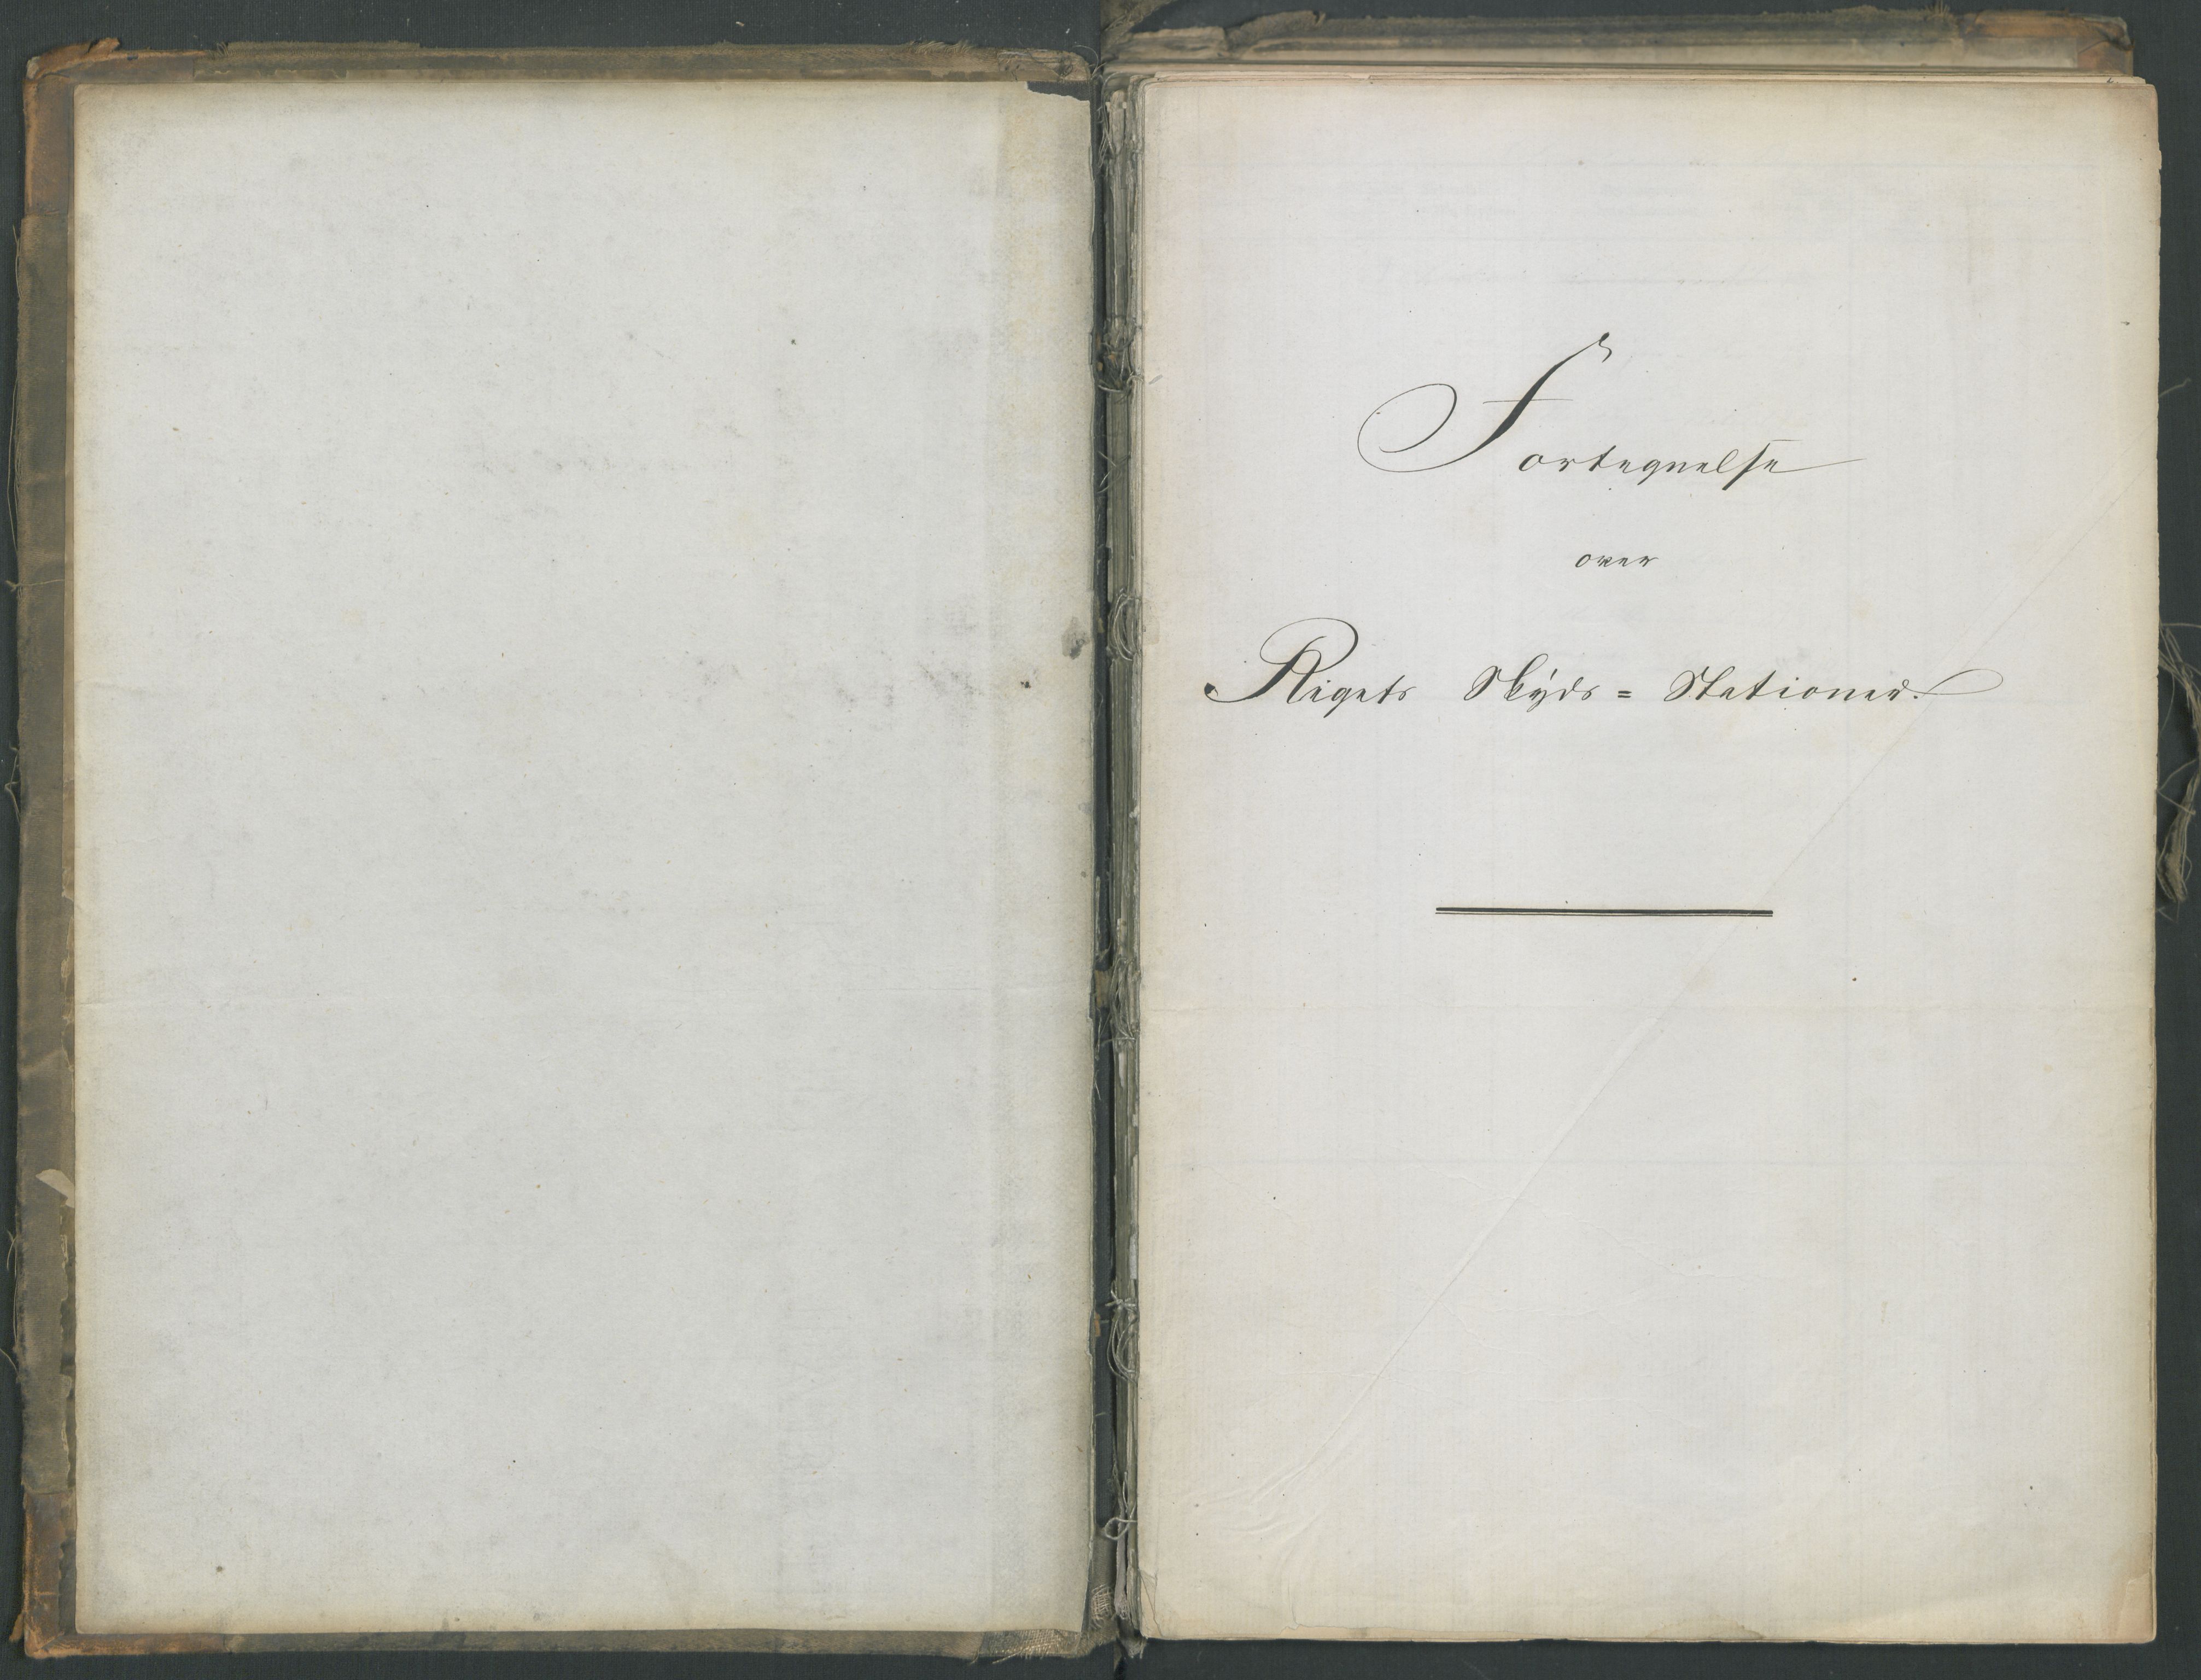 Fortegnelse
over
Rigets Skyds = Stationer.